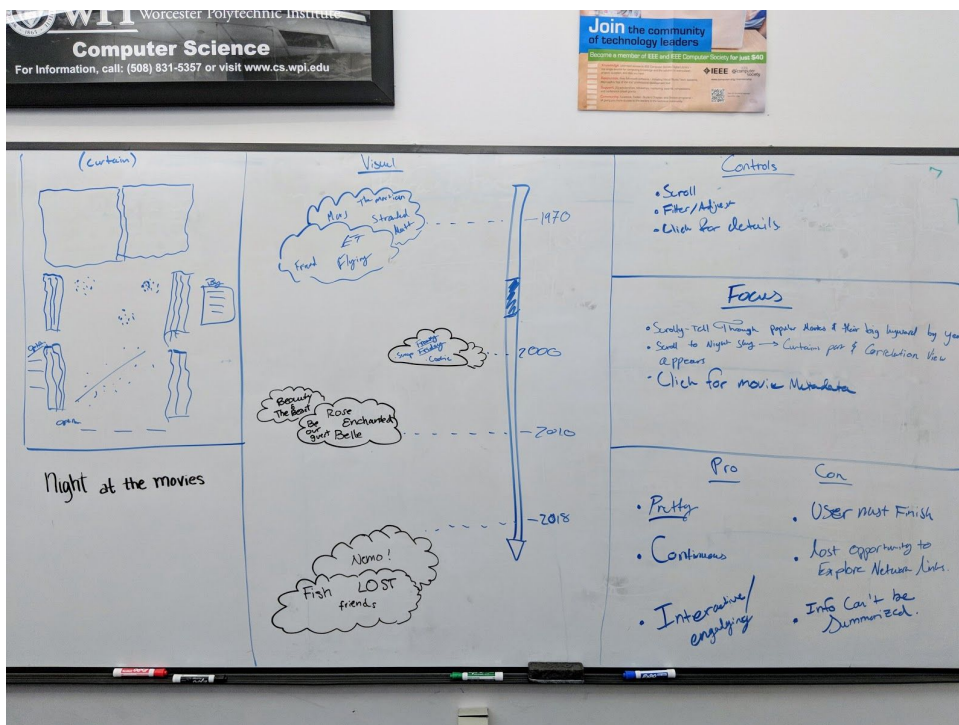 WPI Worcester Polytechnic Institute
Computer Science
For Information, call: (508) 831-5357 or visit www.cs.wpi.edu
Join the community
of technology leaders
Become a member of IEEE and IEEE Computer Society for just $40
IEEE
computer
society
(curtain)
Night at the movies
Visual
The martian
Mars
Stranded
Matt
ET
Friend Flying
1970
2000
Beauty
& The Beast
Rose
Be Enchanted
our
guest Belle
2010
2018
Nemo!
Fish LOST
friends
Controls
• Scroll
• Filter/Adjust
• Click for details
Focus
• Scrolly-Tell Through popular Movies & their big keyword by year
• Scroll to Night Sky → Curtains part & Correlation View
appears
- Click for movie Metadata
Pro
• Pretty
• Continuous
• Interactive/
engaging
Con
• User must Finish
• lost opportunity to
Explore Network links.
• Info Can't be
Summarized.